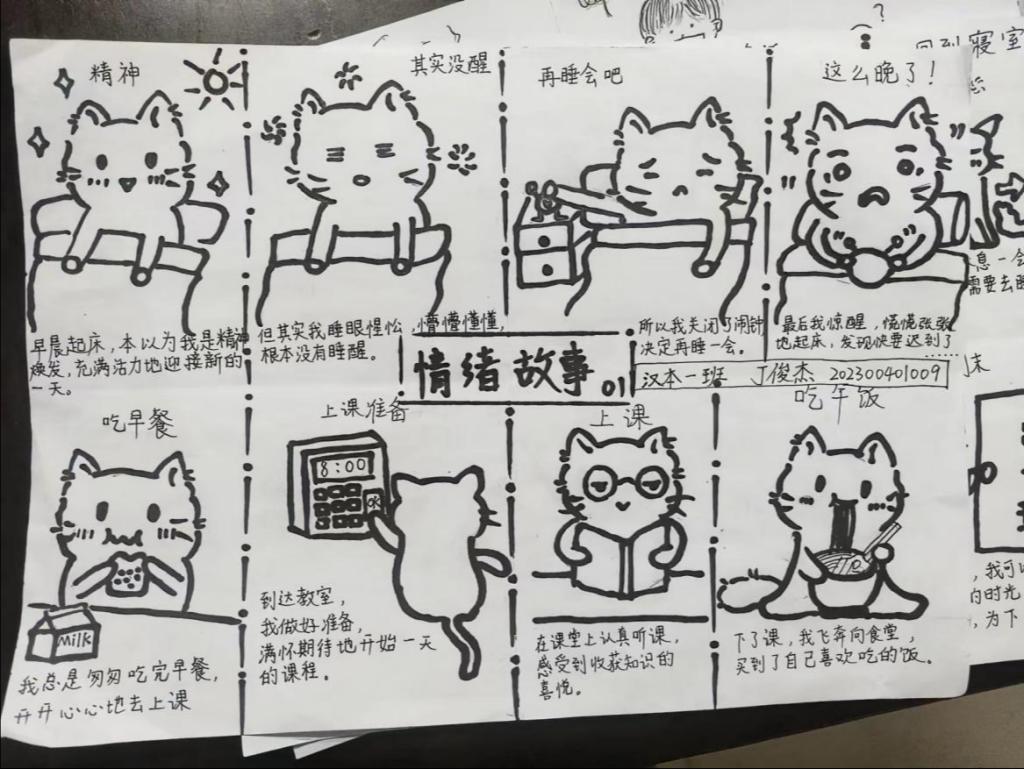 精神
早晨起床，本以为我是精神
焕发，充满活力地迎接新的
一天。
其实没醒
但其实我睡眼惺忪，懵懵懂懂，
根本没有睡醒。
再睡会吧
所以我关闭了闹钟
决定再睡一会。
这么晚了！
最后我惊醒，慌慌张张
地起床，发现快要迟到了
……
情绪故事 01
汉本一班 丁俊杰 202300401009
吃早餐
Milk
我总是匆匆吃完早餐，
开开心心地去上课
上课准备
8:00
OK
到达教室，
我做好准备，
满怀期待地开始一天
的课程。
上课
在课堂上认真听课，
感受到收获知识的
喜悦。
吃午饭
下了课，我飞奔向食堂，
买到了自己喜欢吃的饭。
?
回到寝室
息一会
需要去睡
末
，我可以
内时光
，为下